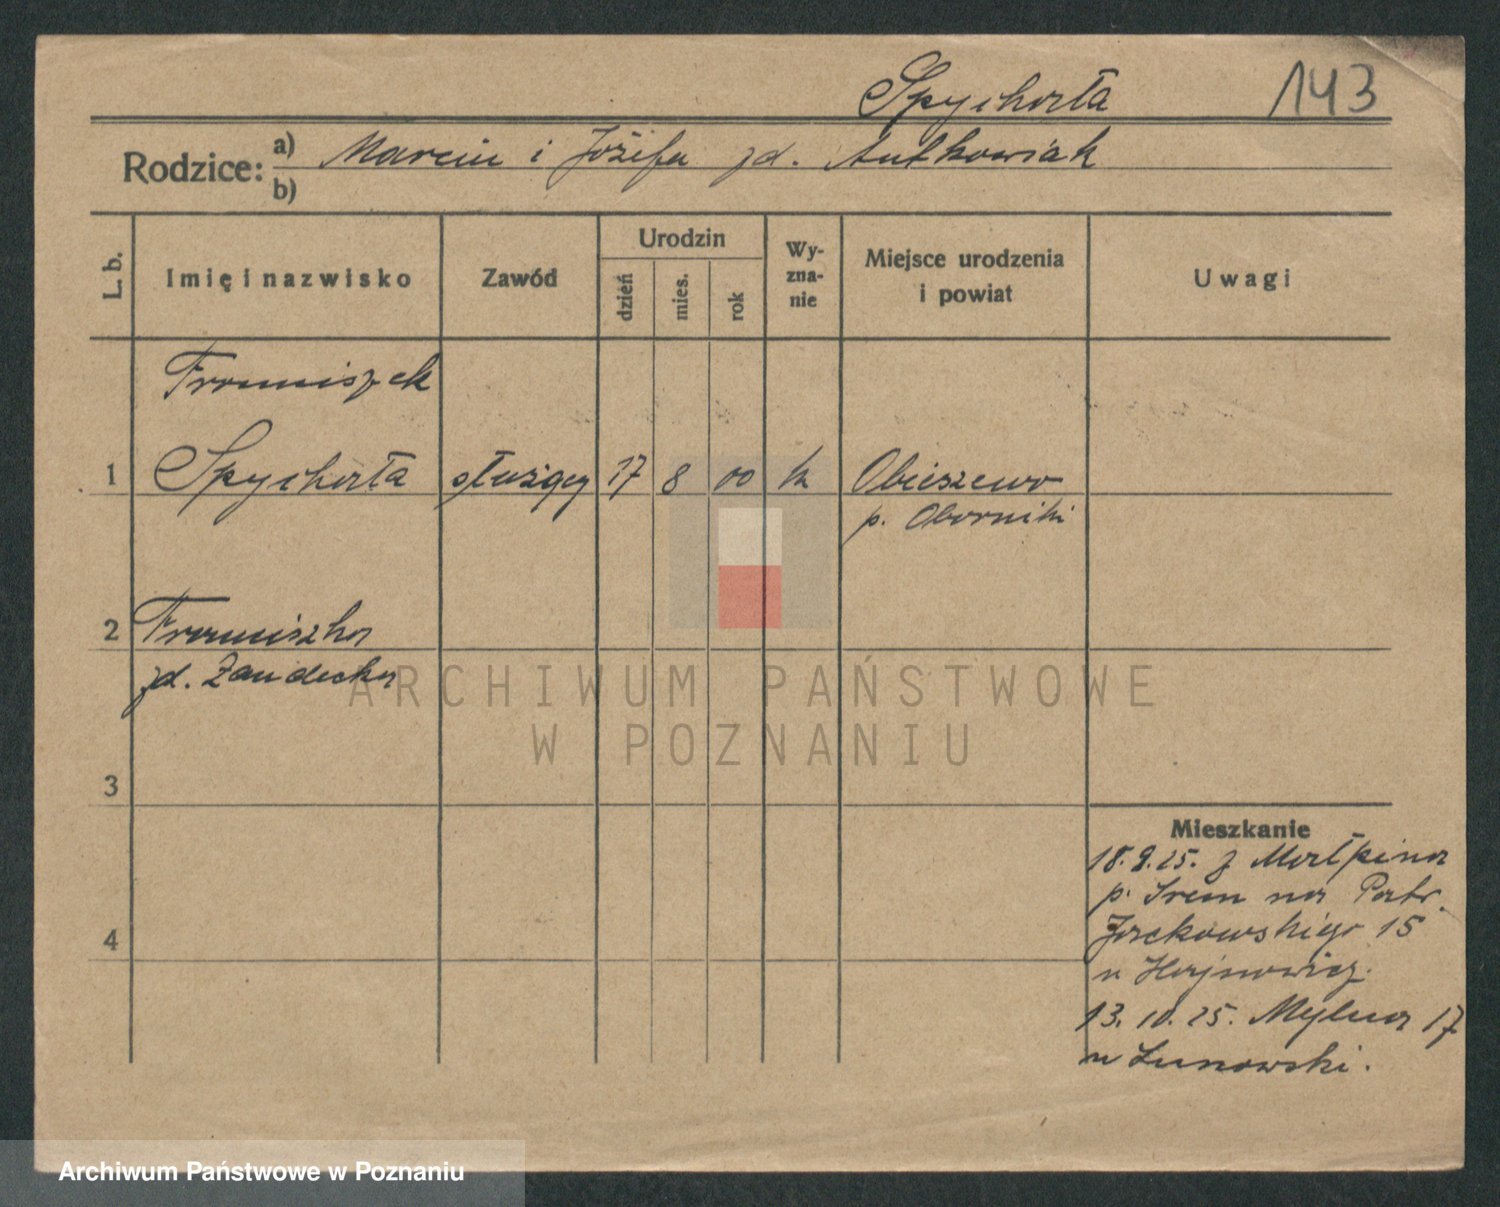 Spychała
143
Rodzice: a) Marcin i Józefa zd. Antkowiak
b)
L. b.
Imię i nazwisko
Zawód
Urodzin
dzień
mies.
rok
Wy-
zna-
nie
Miejsce urodzenia
i powiat
Uwagi
Franciszek
1 Spychała służący 17 8 00 k Obieszewo
p. Oborniki
2 Franciszka
zd. Żandecka
3
4
Mieszkanie
18.9.25. z Małpina
p. Śrem na Patr.
Jackowskiego 15
u Hajnowicz.
13.10.25. Mylna 17
u Lunowski.
ARCHIWUM PAŃSTWOWE
W POZNANIU
Archiwum Państwowe w Poznaniu